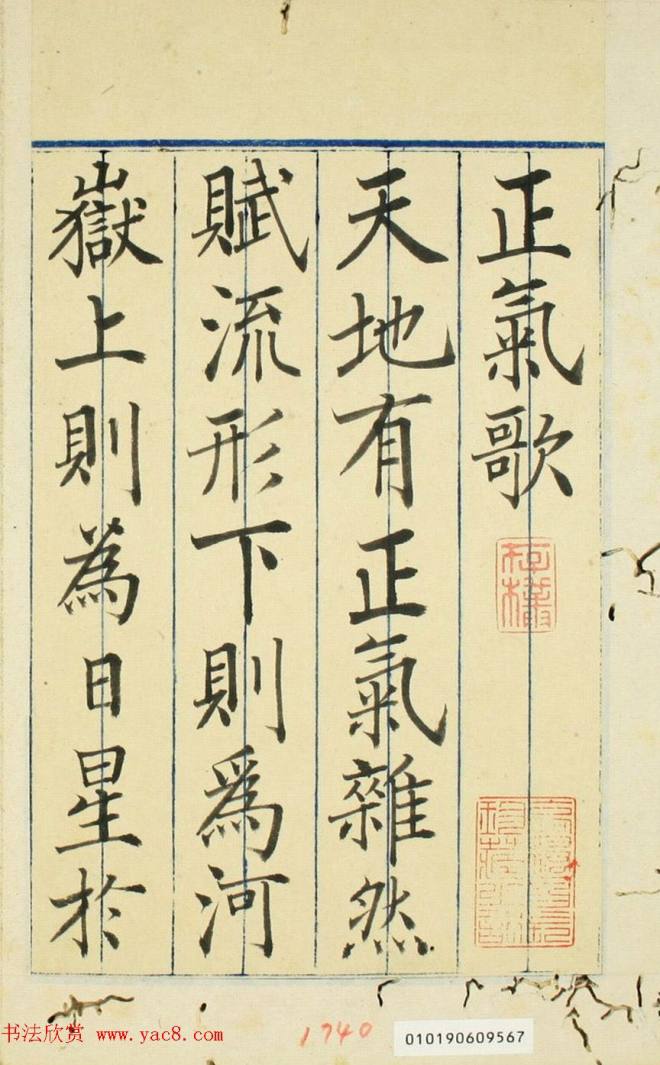 正氣歌
天地有正氣雜然
賦流形下則為河
嶽上則為日星於
书法欣赏 www.yac8.com
1740
010190609567